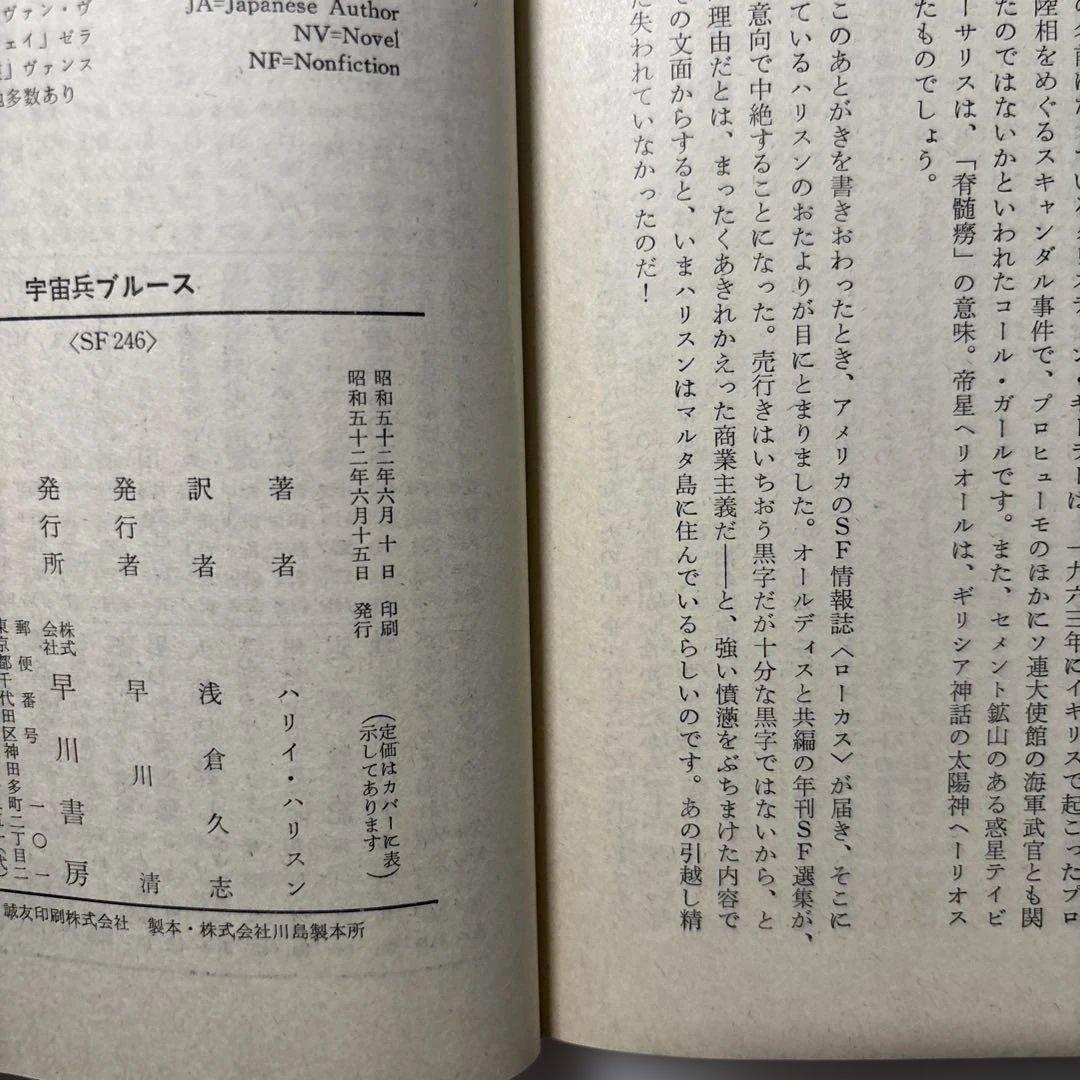 陸相をめぐるスキャンダル事件で、プロヒューモのほかにソ連大使館の海軍武官とも関
たのではないかといわれたコール・ガールです。また、セメント鉱山のある惑星テイビ
ーサリスは、「脊髄癆」の意味。帝星ヘリオールは、ギリシア神話の太陽神ヘーリオス
たものでしょう。
このあとがきを書きおわったとき、アメリカのSF情報誌〈ローカス〉が届き、そこに
ているハリスンのおたよりが目にとまりました。オールディスと共編の年刊SF選集が、
意向で中絶することになった。売行きはいちおう黒字だが十分な黒字ではないから、と
理由だとは、まったくあきれかえった商業主義だ――と、強い憤懣をぶちまけた内容で
その文面からすると、いまハリスンはマルタ島に住んでいるらしいのです。あの引越し精
だ失われていなかったのだ!
ヴァン・ヴ
ェイ』ゼラ
』ヴァンス
他多数あり
JA=Japanese Author
NV=Novel
NF=Nonfiction
宇宙兵ブルース
〈SF246〉
昭和五十二年六月 十 日 印刷
昭和五十二年六月十五日 発行
(定価はカバーに表
示してあります)
著者 ハリイ・ハリスン
訳者 浅倉久志
発行者 早川 清
発行所 株式会社 早川書房
郵便番号 一〇一
東京都千代田区神田多町二丁目二
誠友印刷株式会社 製本・株式会社川島製本所